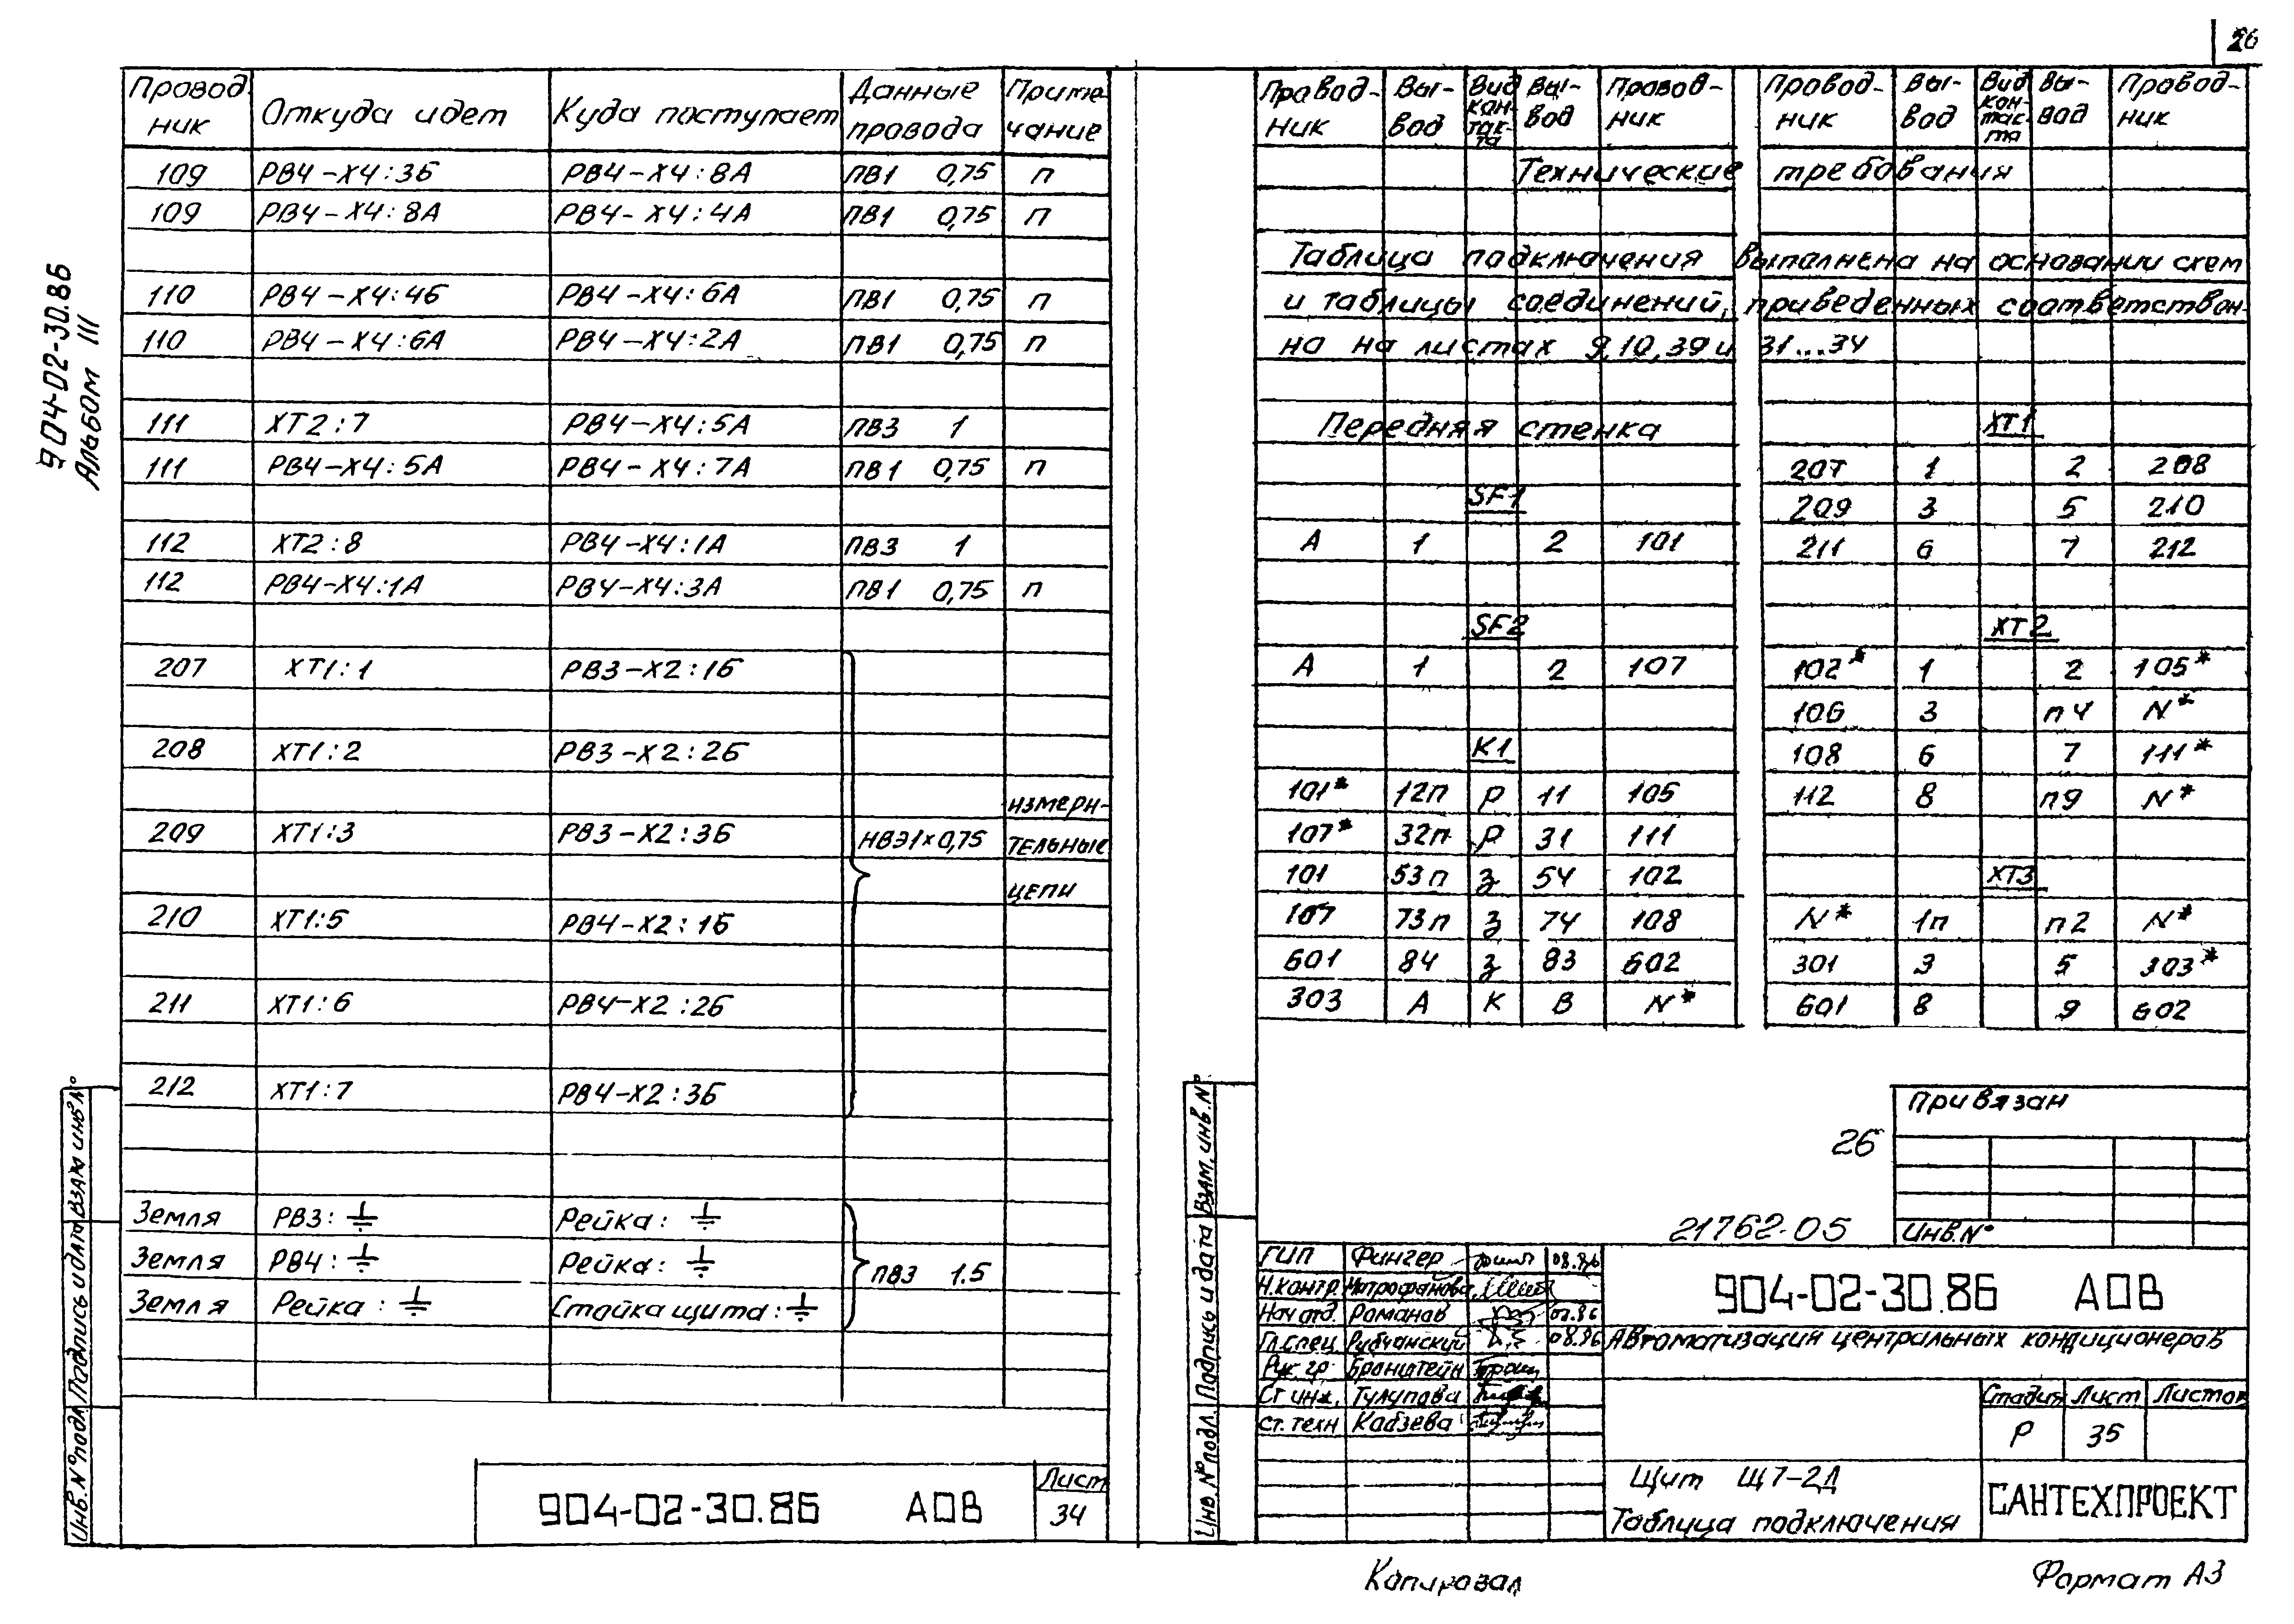 26
904-02-30.86
Альбом III
Провод ник Откуда идет Куда поступает Данные провода Примечание
109 РВ4-Х4:3Б РВ4-Х4:8А ПВ1 0,75 п
109 РВ4-Х4:8А РВ4-Х4:4А ПВ1 0,75 п
110 РВ4-Х4:4Б РВ4-Х4:6А ПВ1 0,75 п
110 РВ4-Х4:6А РВ4-Х4:2А ПВ1 0,75 п
111 ХТ2:7 РВ4-Х4:5А ПВ3 1
111 РВ4-Х4:5А РВ4-Х4:7А ПВ1 0,75 п
112 ХТ2:8 РВ4-Х4:1А ПВ3 1
112 РВ4-Х4:1А РВ4-Х4:3А ПВ1 0,75 п
207 ХТ1:1 РВ3-Х2:1Б
208 ХТ1:2 РВ3-Х2:2Б
209 ХТ1:3 РВ3-Х2:3Б НВЭ1×0,75 измери-
тельные
цепи
210 ХТ1:5 РВ4-Х2:1Б
211 ХТ1:6 РВ4-Х2:2Б
212 ХТ1:7 РВ4-Х2:3Б
Земля РВ3: ⏚ Рейка: ⏚
Земля РВ4: ⏚ Рейка: ⏚ ПВ3 1.5
Земля Рейка: ⏚ Стойка щита: ⏚
904-02-30.86 АОВ
Лист
34
Инв.№подл. Подпись и дата Взам инв№
Провод-ник Вы-вод Вид кон-так-та Вы-вод Провод-ник
Провод-ник Вы-вод Вид кон-так-та Вы-вод Провод-ник
Технические требования
Таблица подключения выполнена на основании схем
и таблицы соединений, приведенных соответствен-
но на листах 9,10,39 и 31...34
Передняя стенка
SF1
А 1 2 101
SF2
А 1 2 107
К1
101* 12п Р 11 105
107* 32п Р 31 111
101 53п З 54 102
107 73п З 74 108
601 84 З 83 602
303 А К В N*
ХТ1
207 1 2 208
209 3 5 210
211 6 7 212
ХТ2
102* 1 2 105*
106 3 п4 N*
108 6 7 111*
112 8 п9 N*
ХТ3
N* 1п п2 N*
301 3 5 303*
601 8 9 602
Привязан
26
21762-05
Инв.№
Инв.№подл. Подпись и дата Взам.инв.№
ГИП Фингер 08.86
Н.контр. Митрофанова
Нач отд. Романов 07.86
Гл.спец. Рубчанский 08.86
Рук. гр. Бронштейн
Ст инж. Тулупова
ст. техн Кабзева
904-02-30.86 АОВ
Автоматизация центральных кондиционеров
Стадия Лист Листов
Р 35
Щит Щ7-2Д
Таблица подключения
САНТЕХПРОЕКТ
Копировал
Формат А3